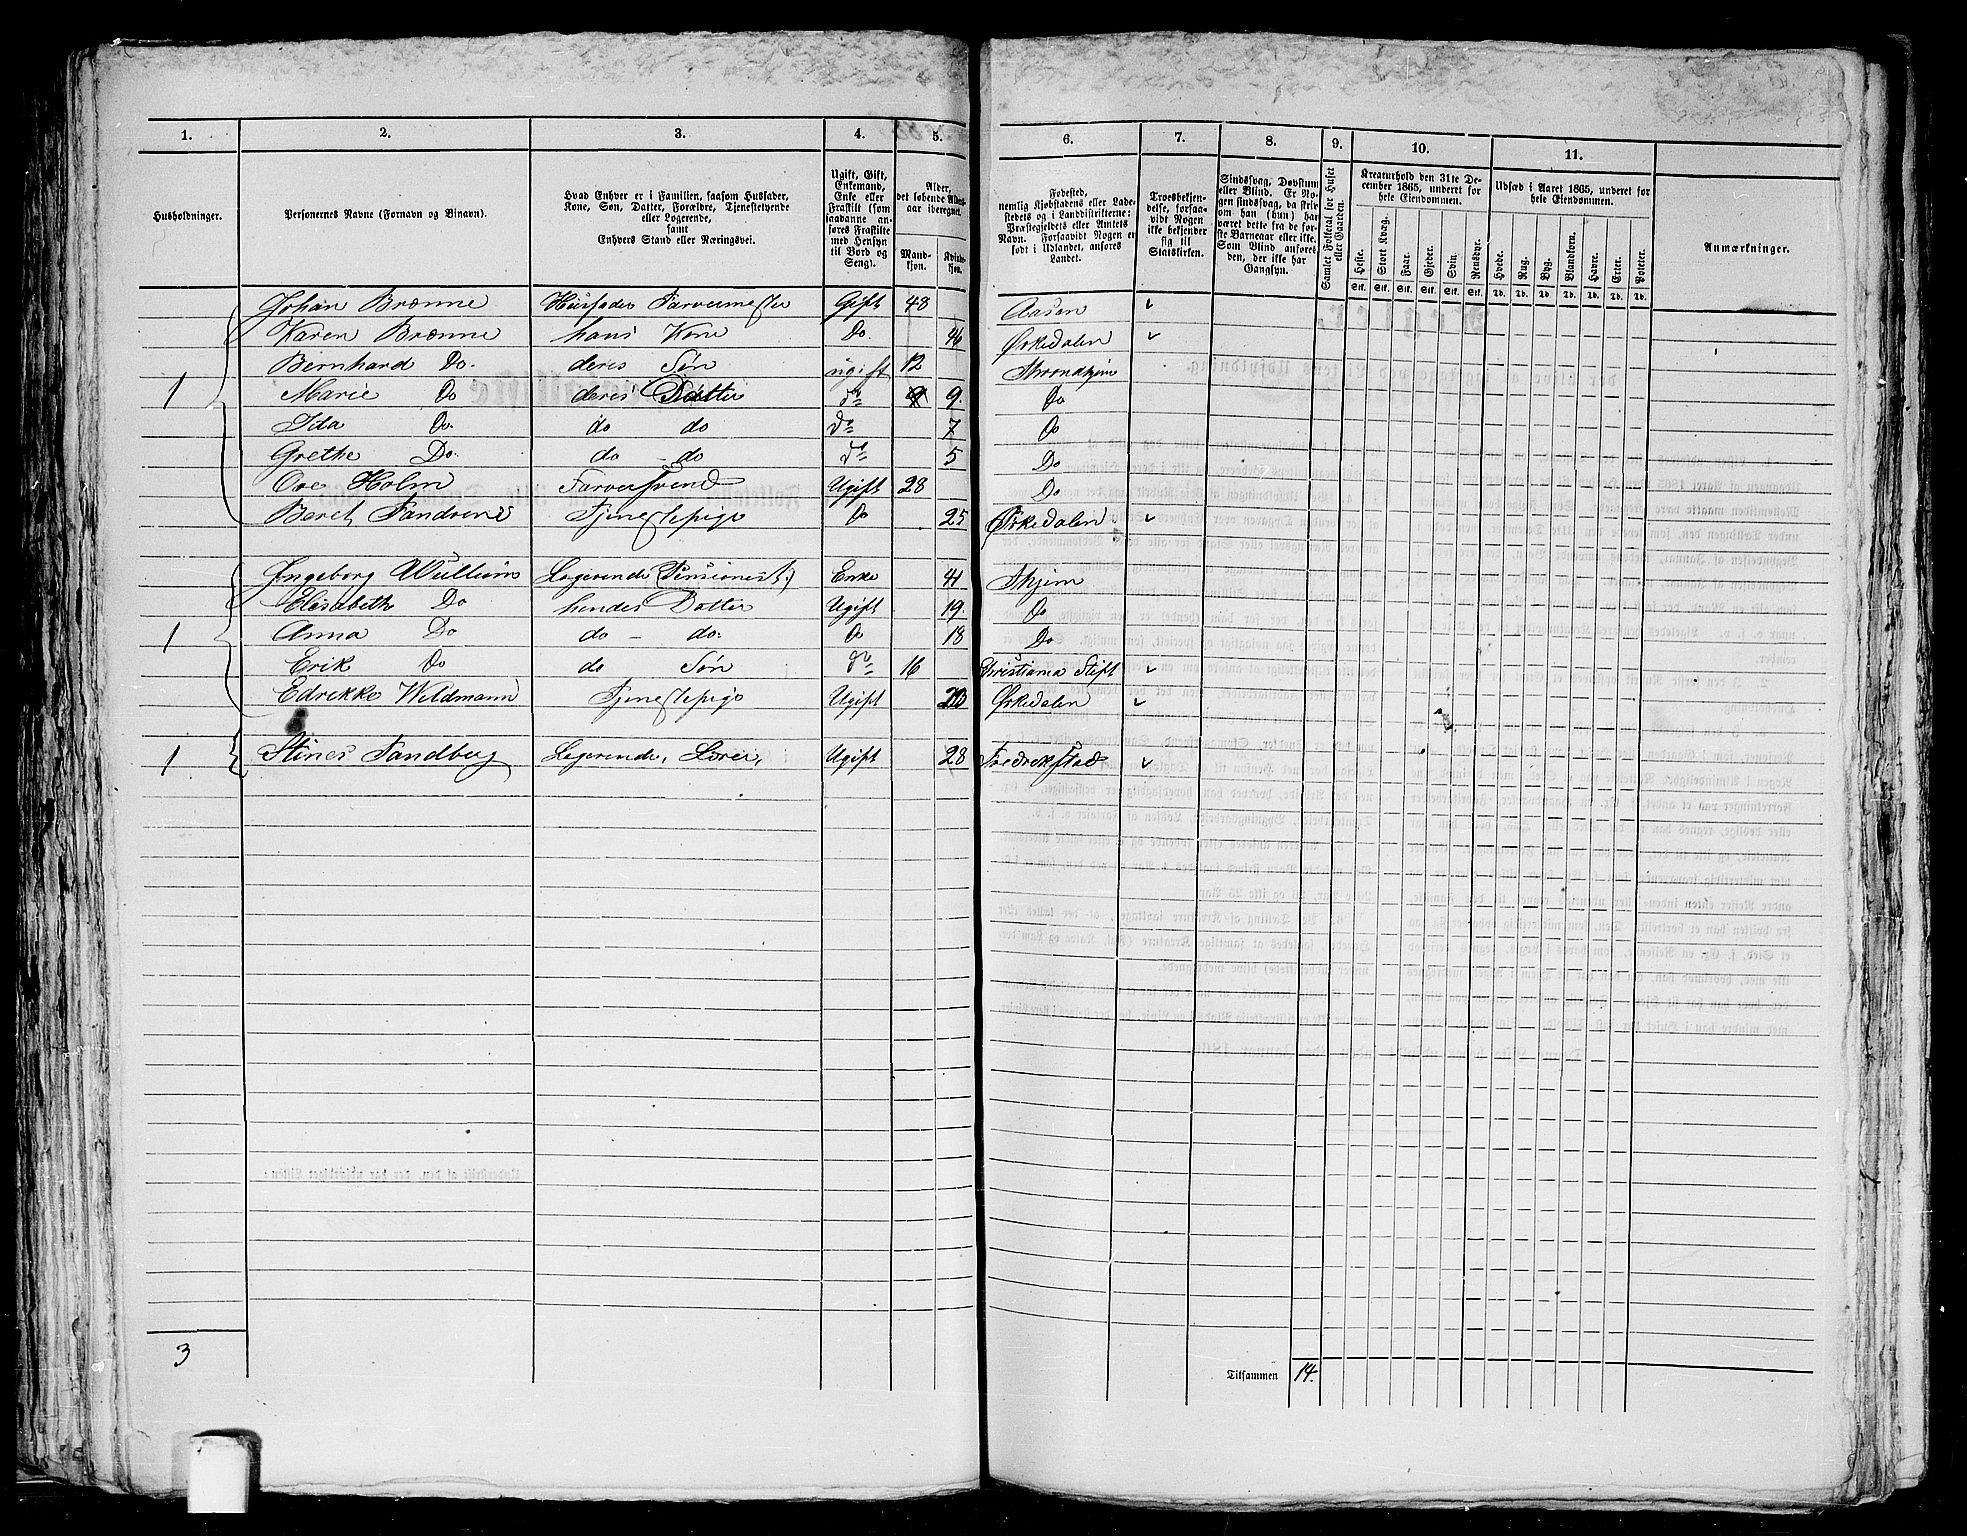 1. 2. 3. 4. 5. 6. 7. 8. 9. 10. 11.
Husholdninger.
Personernes Navne (Fornavn og Binavn).
Hvad Enhver er i Familien, saasom Husfader,
Kone, Søn, Datter, Forældre, Tjenestetyende
eller Logerende,
samt
Enhvers Stand eller Næringsvei.
Ugift, Gift,
Enkemand,
Enke eller
Fraskilt (som
saadanne an-
føres Fraskilte
med Hensyn
til Bord og
Seng).
Alder,
det løbende Alders-
aar iberegnet.
Mand-
kjøn.
Kvinde-
kjøn.
Fødested,
nemlig Kjøbstadens eller Lade-
stedets og i Landdistrikterne:
Præstegjeldets eller Amtets
Navn. Forsaavidt Nogen er
født i Udlandet, anføres
Landet.
Troesbekjen-
delse, forsaa-
vidt Nogen
ikke bekjender
sig til
Statskirken.
Sindssvag, Døvstum
eller Blind. Er No-
gen sindssvag, da skriv
om han (hun) har
været dette fra de før-
ste Barneaar eller ikke.
Som Blind anføres
den, der ikke har
Gangsyn.
Samlet Folketal for Huset
eller Gaarden.
Kreaturhold den 31te De-
cember 1865, underet for
hele Eiendommen.
Heste. Stort Kvæg. Faar. Gjeder. Svin. Rensdyr.
Stk. Stk. Stk. Stk. Stk. Stk.
Udsæd i Aaret 1865, underet for
hele Eiendommen.
Hvede. Rug. Byg. Blandkorn. Havre. Erter. Poteter.
Td. Td. Td. Td. Td. Td. Td.
Anmærkninger.
Johan Brønne Husfader Farvermester Gift 48 Aasan
Karen Brønne hans Kone Do. 46 Ørkedalen
Bernhard Do. deres Søn ugift 12 Throndhjem
1 Marie Do deres Datter do 9 9. Do
Ida Do. do do do 7 Do
Grethe Do. do - do do 5 Do
Ove Holm Farversvend Ugift 28 Do
Beret Tjenestepige Do 25 Ørkedalen
Ingeborg Wullum Logerende (Pensionist.) Enke 41 Thjem
Elisabeth Do hendes Datter Ugift 19. Do
1 Anna Do do - do. Do 18 Do
Erik Do do Søn do 16 Christiania Stift
Edvikke Weldmann Tjenestepige Ugift 20 Ørkedalen
1 Stines Sandberg Logerende, Ugift 28 Fredrekstad
3
Tilsammen 14.